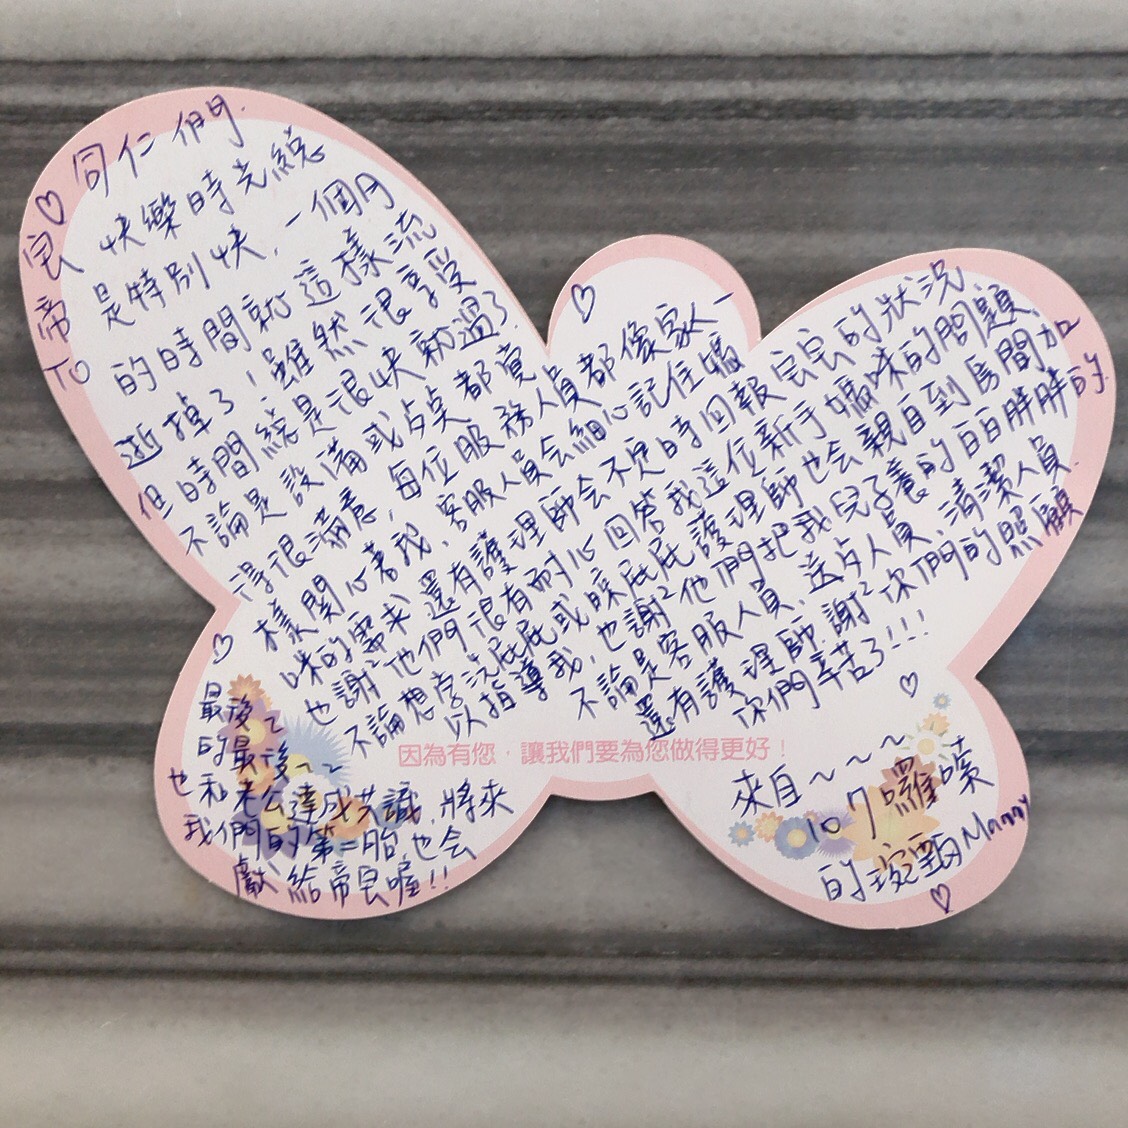 TO 帝宦♡同仁們.
快樂時光總
是特別快,一個月
的時間就這樣流
逝掉了!雖然很享受
但時間總是很快就過了.
不論是設備或点点都覺
得很滿意,每位服務人員都像家人一
樣關心著我,客服人員會細心記住媽
咪的需求 還有護理師會不定時回報宝宝的狀況
也謝²他們很有耐心回答我這位新手媽咪的問題
不論想学洗屁屁或踩屁屁護理師也會親自到房間加
以指導我,也謝²他們把我兒子養的白白胖胖的.
不論是客服人員、送点人員、清潔人員.
還有護理師.謝²你們的照顧
你們辛苦了!!!
♡
♡
最後~
的最後~~
也和老公達成共識,將來
我們的第二胎也会
獻給帝宦喔!!
因為有您,讓我們要為您做得更好!
♡
來自~~~~
107囉嗦
的琬甄Manny
♡